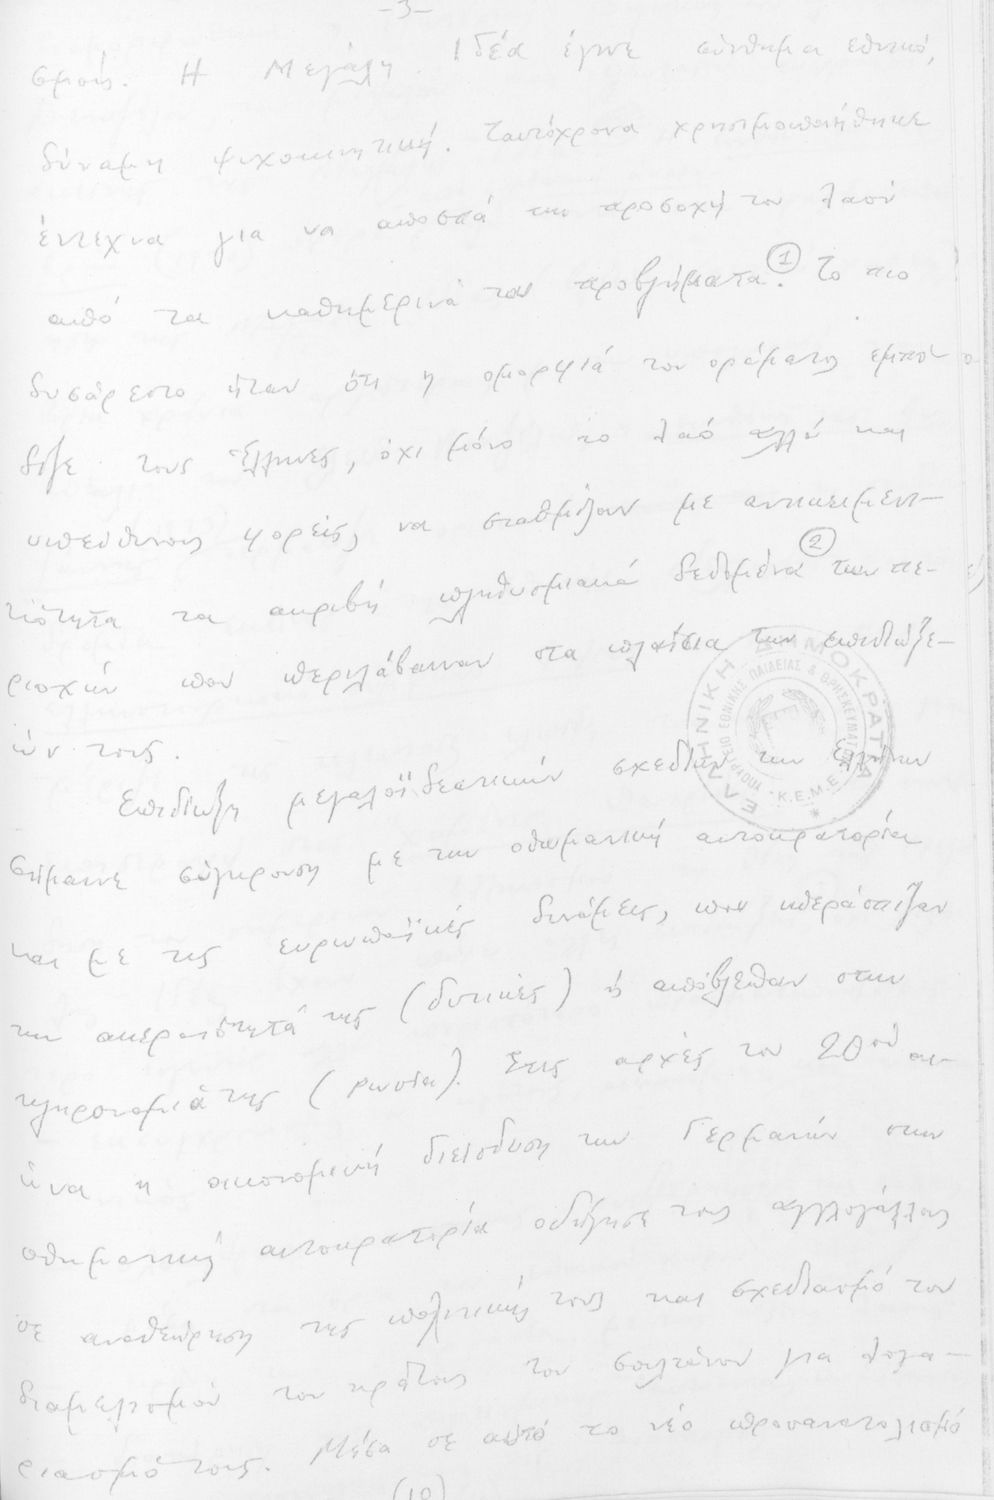 -3-
σμούς. Η Μεγάλη Ιδέα έγινε σύνθημα εθνικό,
δύναμη ψυχοκινητική. Ταυτόχρονα χρησιμοποιήθηκε
έντεχνα για να αποσπά την προσοχή του λαού
από τα καθημερινά του προβλήματα. ① Το πιο
δυσάρεστο ήταν ότι η ομορφιά του οράματος εμπό-
διζε τους Έλληνες, όχι μόνο το λαό αλλά και
υπεύθυνους φορείς, να σταθμίζουν με αντικειμενι-
κότητα τα ακριβή πληθυσμιακά δεδομένα ② των πε-
ριοχών που περιλάβαιναν στα πλαίσια των επιδιώξε-
ών τους.
Επιδίωξη μεγαλοϊδεατικών σχεδίων των Ελλήνων
σήμαινε σύγκρουση με την οθωμανική αυτοκρατορία
και με τις ευρωπαϊκές δυνάμεις, που υπεράσπιζαν
την ακεραιότητά της (δυτικές) ή απόβλεπαν στην
κληρονομιά της (ρωσία). Στις αρχές του 20ού αι-
ώνα η οικονομική διείσδυση των Γερμανών στην
οθωμανική αυτοκρατορία οδήγησε τους αγγλογάλλους
σε αναθεώρηση της πολιτικής τους και σχεδιασμό του
διαμελισμού του κράτους του σουλτάνου για λογα-
ριασμό τους. Μέσα σε αυτό το νέο προσανατολισμό
(10)
ΕΛΛΗΝΙΚΗ ΔΗΜΟΚΡΑΤΙΑ
ΥΠΟΥΡΓΕΙΟ ΕΘΝΙΚΗΣ ΠΑΙΔΕΙΑΣ & ΘΡΗΣΚΕΥΜΑΤΩΝ
Κ.Ε.Μ.Ε.